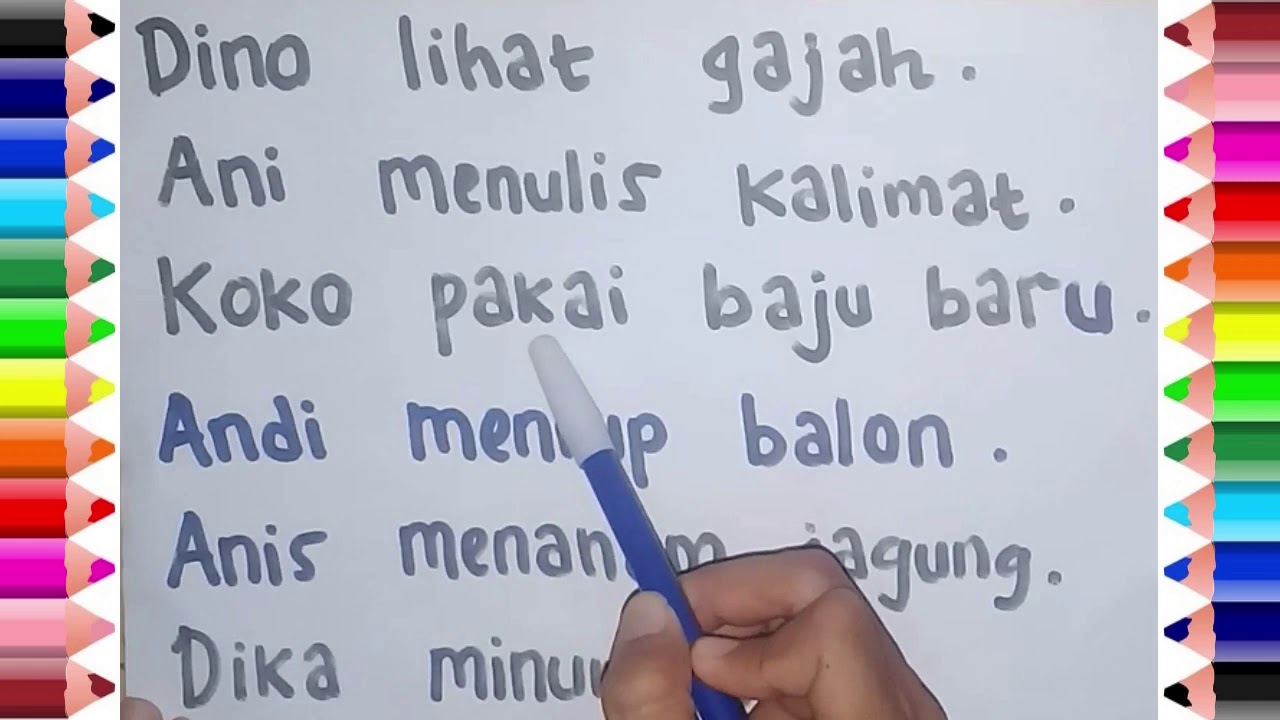 Dino lihat gajah.
Ani menulis kalimat.
Koko pakai baju baru.
Andi balon.
Anis jagung.
Dika